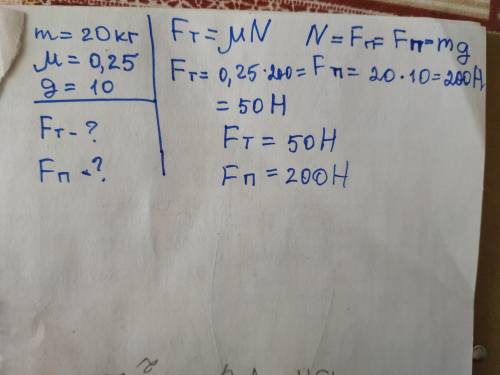 m = 20 кг
μ = 0,25
g = 10
Fт - ?
Fп - ?
Fт = μN N = Fт = Fп = mg
Fт = 0,25 · 200 = Fп = 20 · 10 = 200 Н
= 50 Н
Fт = 50 Н
Fп = 200 Н